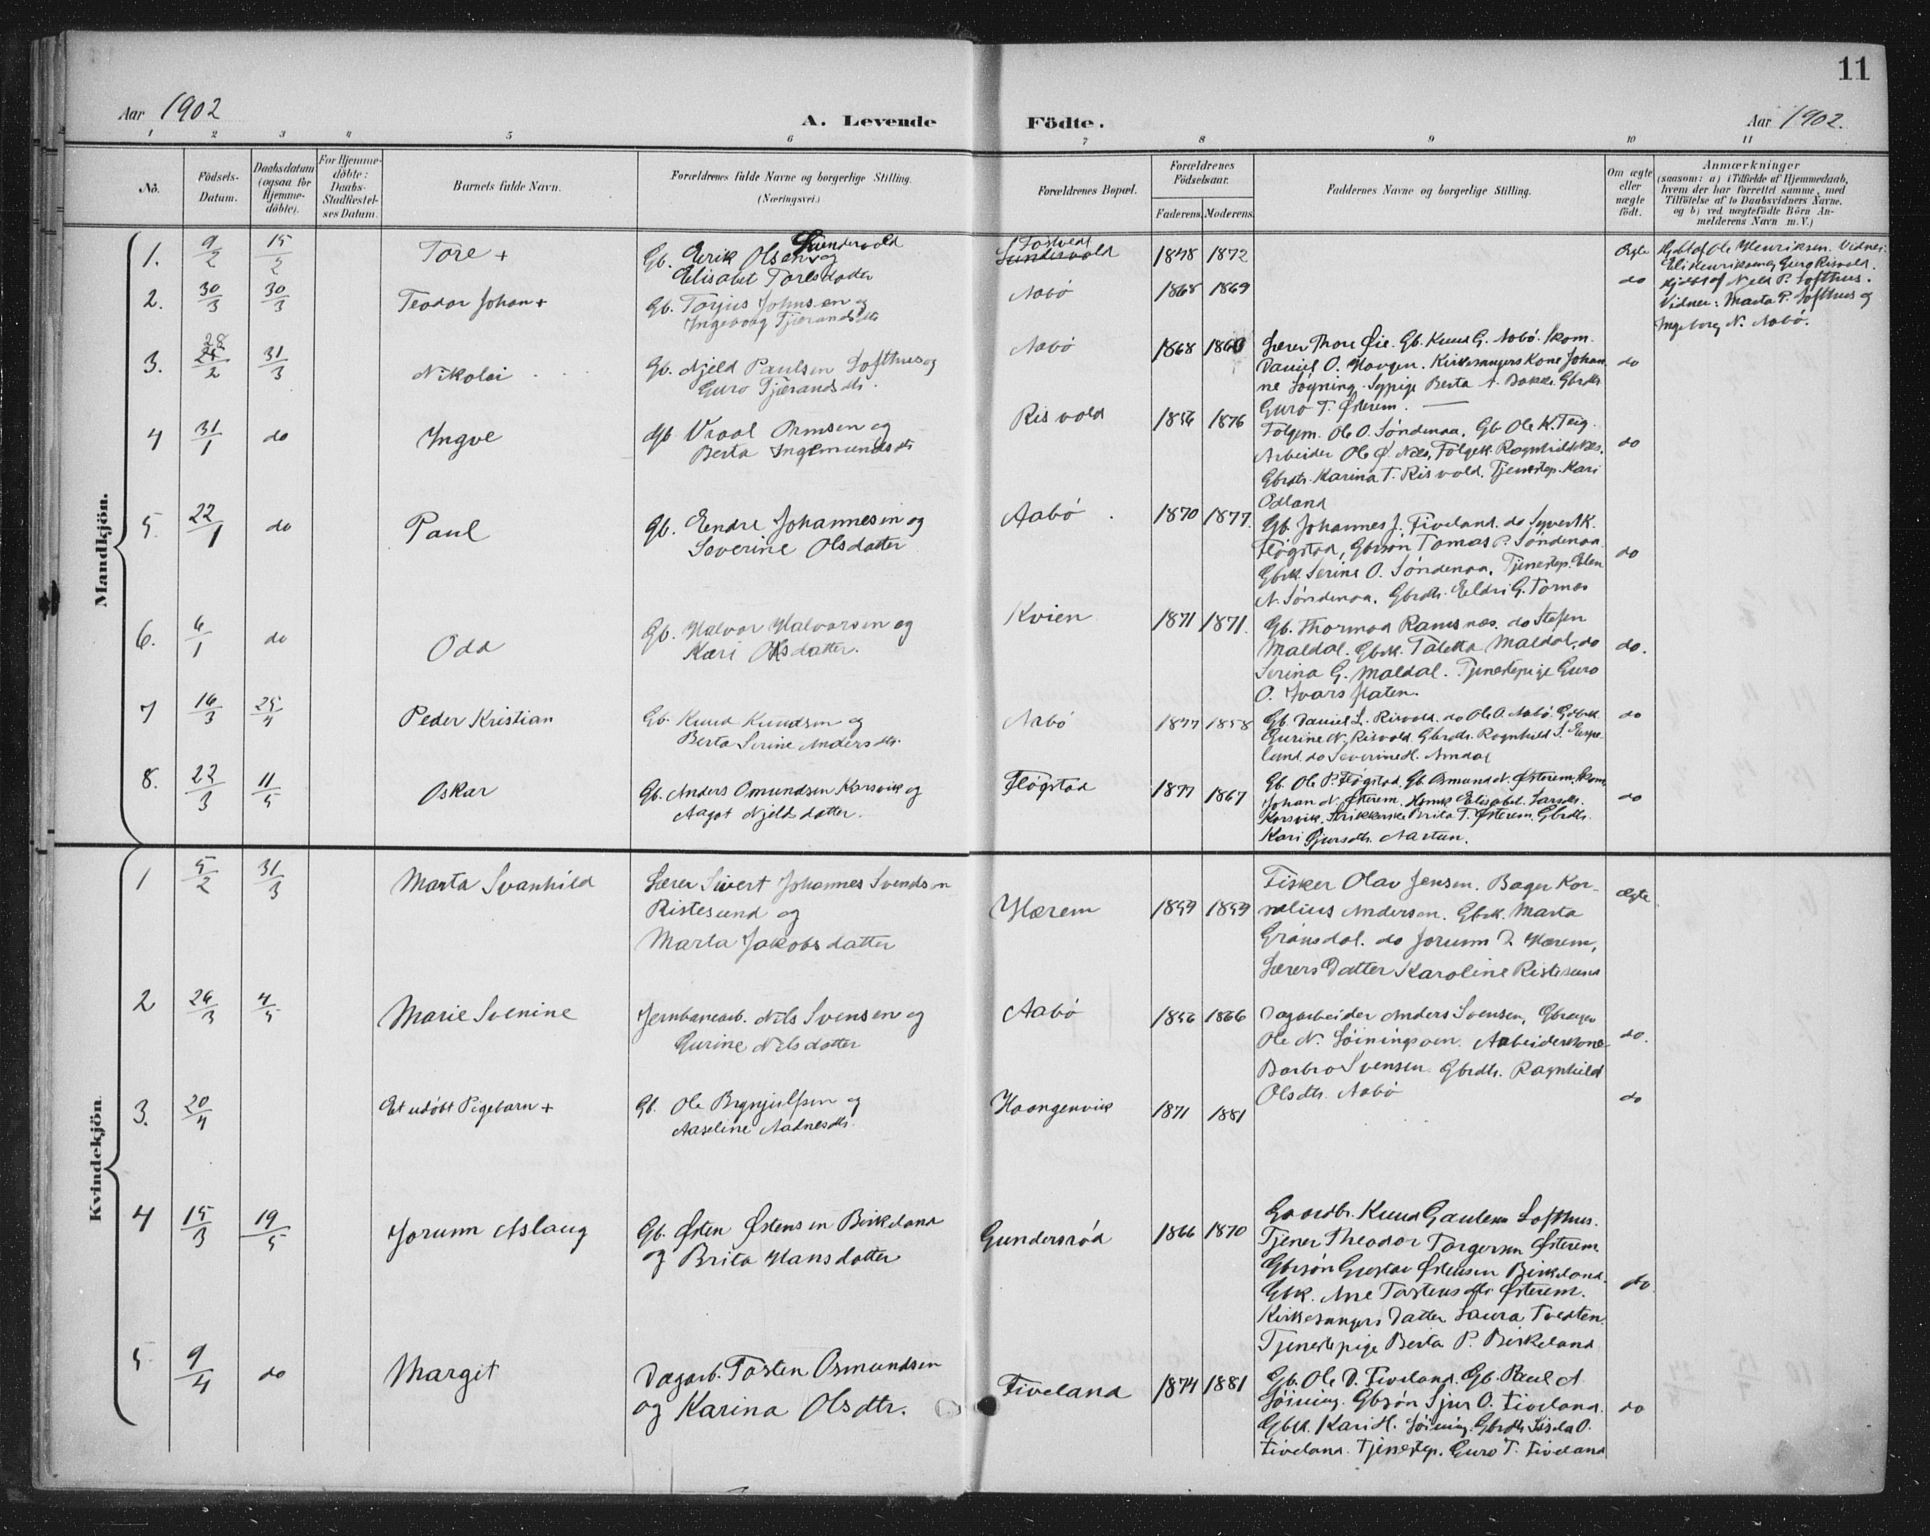 11
Aar 1902
A. Levende Födte.
Aar 1902.
1 2 3 4 5 6 7 8 9 10 11
No.
Födsels-Datum.
Daabsdatum (ogsaa for Hjemme-döbte).
For Hjemme-döbte: Daabs-Stadfæstel-ses Datum.
Barnets fulde Navn.
Forældrenes fulde Navne og borgerlige Stilling.
(Næringsvei.)
Forældrenes Bopæl.
Forældrenes Födselsaar.
Faderens. Moderens.
Faddernes Navne og borgerlige Stilling.
Om ægte eller uægte födt.
Anmærkninger
(saasom: a) i Tilfælde af Hjemmedaab,
hvem der har forrettet samme, med
Tilföielse af to Daabsvidners Navne,
og b) ved uægtefödte Börn An-
melderens Navn m. V.)
Mandkjön.
1. 9/2 15/2 Tore + Gb. Eirik Olsen Sundervold og
Elisabet Toresdatter
Tostvedt Sundervold 1848 1872 Ægte
Hjdbt af Ole Henriksen. Vidner:
Eli Henriksen og Guro Risvold.
2. 30/3 30/3 Teodor Johan + Gb. Torjus Johnsen og
Ingeborg Tjærandsdtr
Aabø 1868 1869 do
Hjdbt af Njeld P. Lofthus.
Vidner: Marta P. Lofthus og
Ingeborg N. Aabø.
3. 28/2 31/3 Nikolai Gb. Njeld Paulsen Lofthus og
Guro Tjærandsdtr.
Aabø 1868 1860
Lærer Thore Øie. Gb. Knud G. Aabø. Skom.
Daniel O. Haugen. Kirkesangers Kone Johan-
ne Løyning. Sypige Berta A. Bakke. Gbrdtr
Guro T. Østerem.
do
4 31/1 do Ingve Gb Vraal Ormsen og
Berta Ingemundsdtr
Risvold 1856 1876
Folgem. Ole O. Søndenaa. Gb Ole K. Teig.
Arbeider Ole Ø. Næs, Følgek. Ragnhild Næs.
Gbrdtr. Karina T. Risvold. Tjenestep. Kari
Odland
do
5. 22/1 do Paul Gb. Endre Johannesen og
Severine Olsdatter
Aabø 1870 1877.
Gb. Johannes J. Fiveland. do Syvert K.
Fløgstad, Gbrsøn Tomas P. Søndenaa.
Gbrk. Serine O. Søndenaa. Tjenestep. Elen
N. Søndenaa. Gbrdtr. Eldri G. Tornes
do
6. 6/1 do Odd Gb. Halvor Halvorsen og
Kari Olsdatter.
Kvien 1871 1871.
Gb. Thormod Ramsnes. do Stefen
Maldal. Gbrk. Taletta Maldal, do
Serina G. Maldal. Tjenestepige Guro
O. Ivarsflaten.
do.
7 16/3 25/4 Peder Kristian Gb. Knud Knudsen og
Berta Serine Andersdtr.
Aabø 1877 1858
Gb. Daniel L. Risvold. do Ole O. Aabø. Gbrk.
Gurine N. Risvold. Gbrdtr. Ragnhild S. Espe-
land. do Severine H. Amdal
do
8. 22/3 11/5 Oskar Gb. Anders Omundsen Karsvik og
Aagot Njeldsdatter.
Fløgstad 1877 1867
Gb. Ole P. Fløgstad. Gb. Osmund N. Østerem. Skom.
Johan N. Østerem. Hsmk. Elisabet Larsdtr.
Korsvik. Strikkerske Brita T. Østerem. Gbrdtr.
Kari Gjursdtr. Nartun.
do
Kvindekjön.
1 5/2 31/3 Marta Svanhild Lærer Sivert Johannes Svendsen
Ristesund og
Marta Jakobsdatter
Hærem 1859 1859
Fisker Olav Jensen. Bager Kor-
nelius Andersen. Gbrk. Marta
Grønsdal. do Jorunn D. Hærem,
Lærers Datter Karoline Ristesund
ægte
2 26/3 4/5 Marie Svenine Jernbanearb. Nils Svensen og
Gurine Nilsdatter
Aabø 1856 1866
Dagarbeider Anders Svensen,
Ole N. Løiningsven. Arbeiderkone
Barbro Svensen Gbrdtr. Ragnhild
Olsdtr. Aabø
do.
3. 20/4 Et udøbt Pigebarn + Gb. Ole Brynjulfsen og
Aaseline Aadnesdtr.
Haangenvik 1871 1881 do
4 15/3 19/5 Jorunn Aslaug Gb. Østen Østensen Birkeland
og Brita Hansdatter
Gundersrød 1866 1870
Gaardbr. Knud Gautesen Lofthus.
Tjener Theodor Torgersen Østerem.
Gbrsøn Gustav Østensen Birkeland.
Gbrk. Ane Tostensdtr Østerem.
Kirkesangers Datter Laura Tveten.
Tjenestepige Berta P. Birkeland
do
5 9/4 do Margit Dagarb. Tosten Osmundsen
og Karina Olsdtr.
Fiveland 1874 1881
Gb. Ole D. Fiveland. Gb. Paul A
Løining. Gbrsøn Sjur O. Fiveland.
Gbrk. Kari H. Løining. Gbrdtr. Sisela O.
Fiveland. Tjenestep. Guro T. Fiveland
do